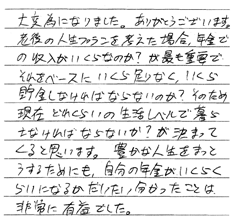 大変為になりました。ありがとうございます。
老後の人生プランを考えた場合、年金で
の収入がいくらなのか?が最も重要で
それをベースにいくら足りなく、いくら
貯金しなければならないのか?そのため
現在どれくらいの生活レベルで暮ら
さなければならないか?が決まって
くると思います。豊かな人生をおく
うするためにも、自分の年金がいくらく
らいになるかだいたい分かったことは
非常に有益でした。